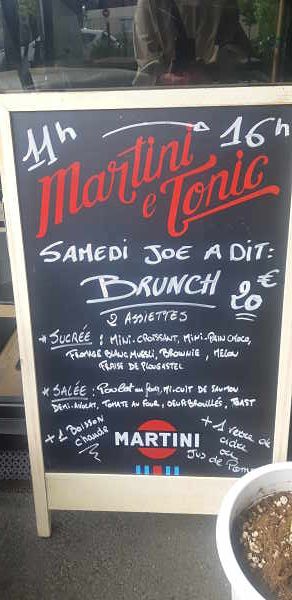 11h → 16h
Martini
e Tonic
SAMEDI JOE A DIT:
BRUNCH 20€
2 ASSIETTES
* SUCRÉE : MINI-CROISSANT, MINI-PAIN CHOCO,
FROMAGE BLANC MUESLI, BROWNIE, MELON
FRAISE DE PLOUGASTEL
* SALÉE : Poulet au four, MI-CUIT DE SAUMON
DEMI-AVOCAT, TOMATE AU FOUR, OEUF BROUILLÉS, TOAST
+ 1 BOISSON
chaude
MARTINI
+ 1 verre de
cidre
ou
Jus de Pomme